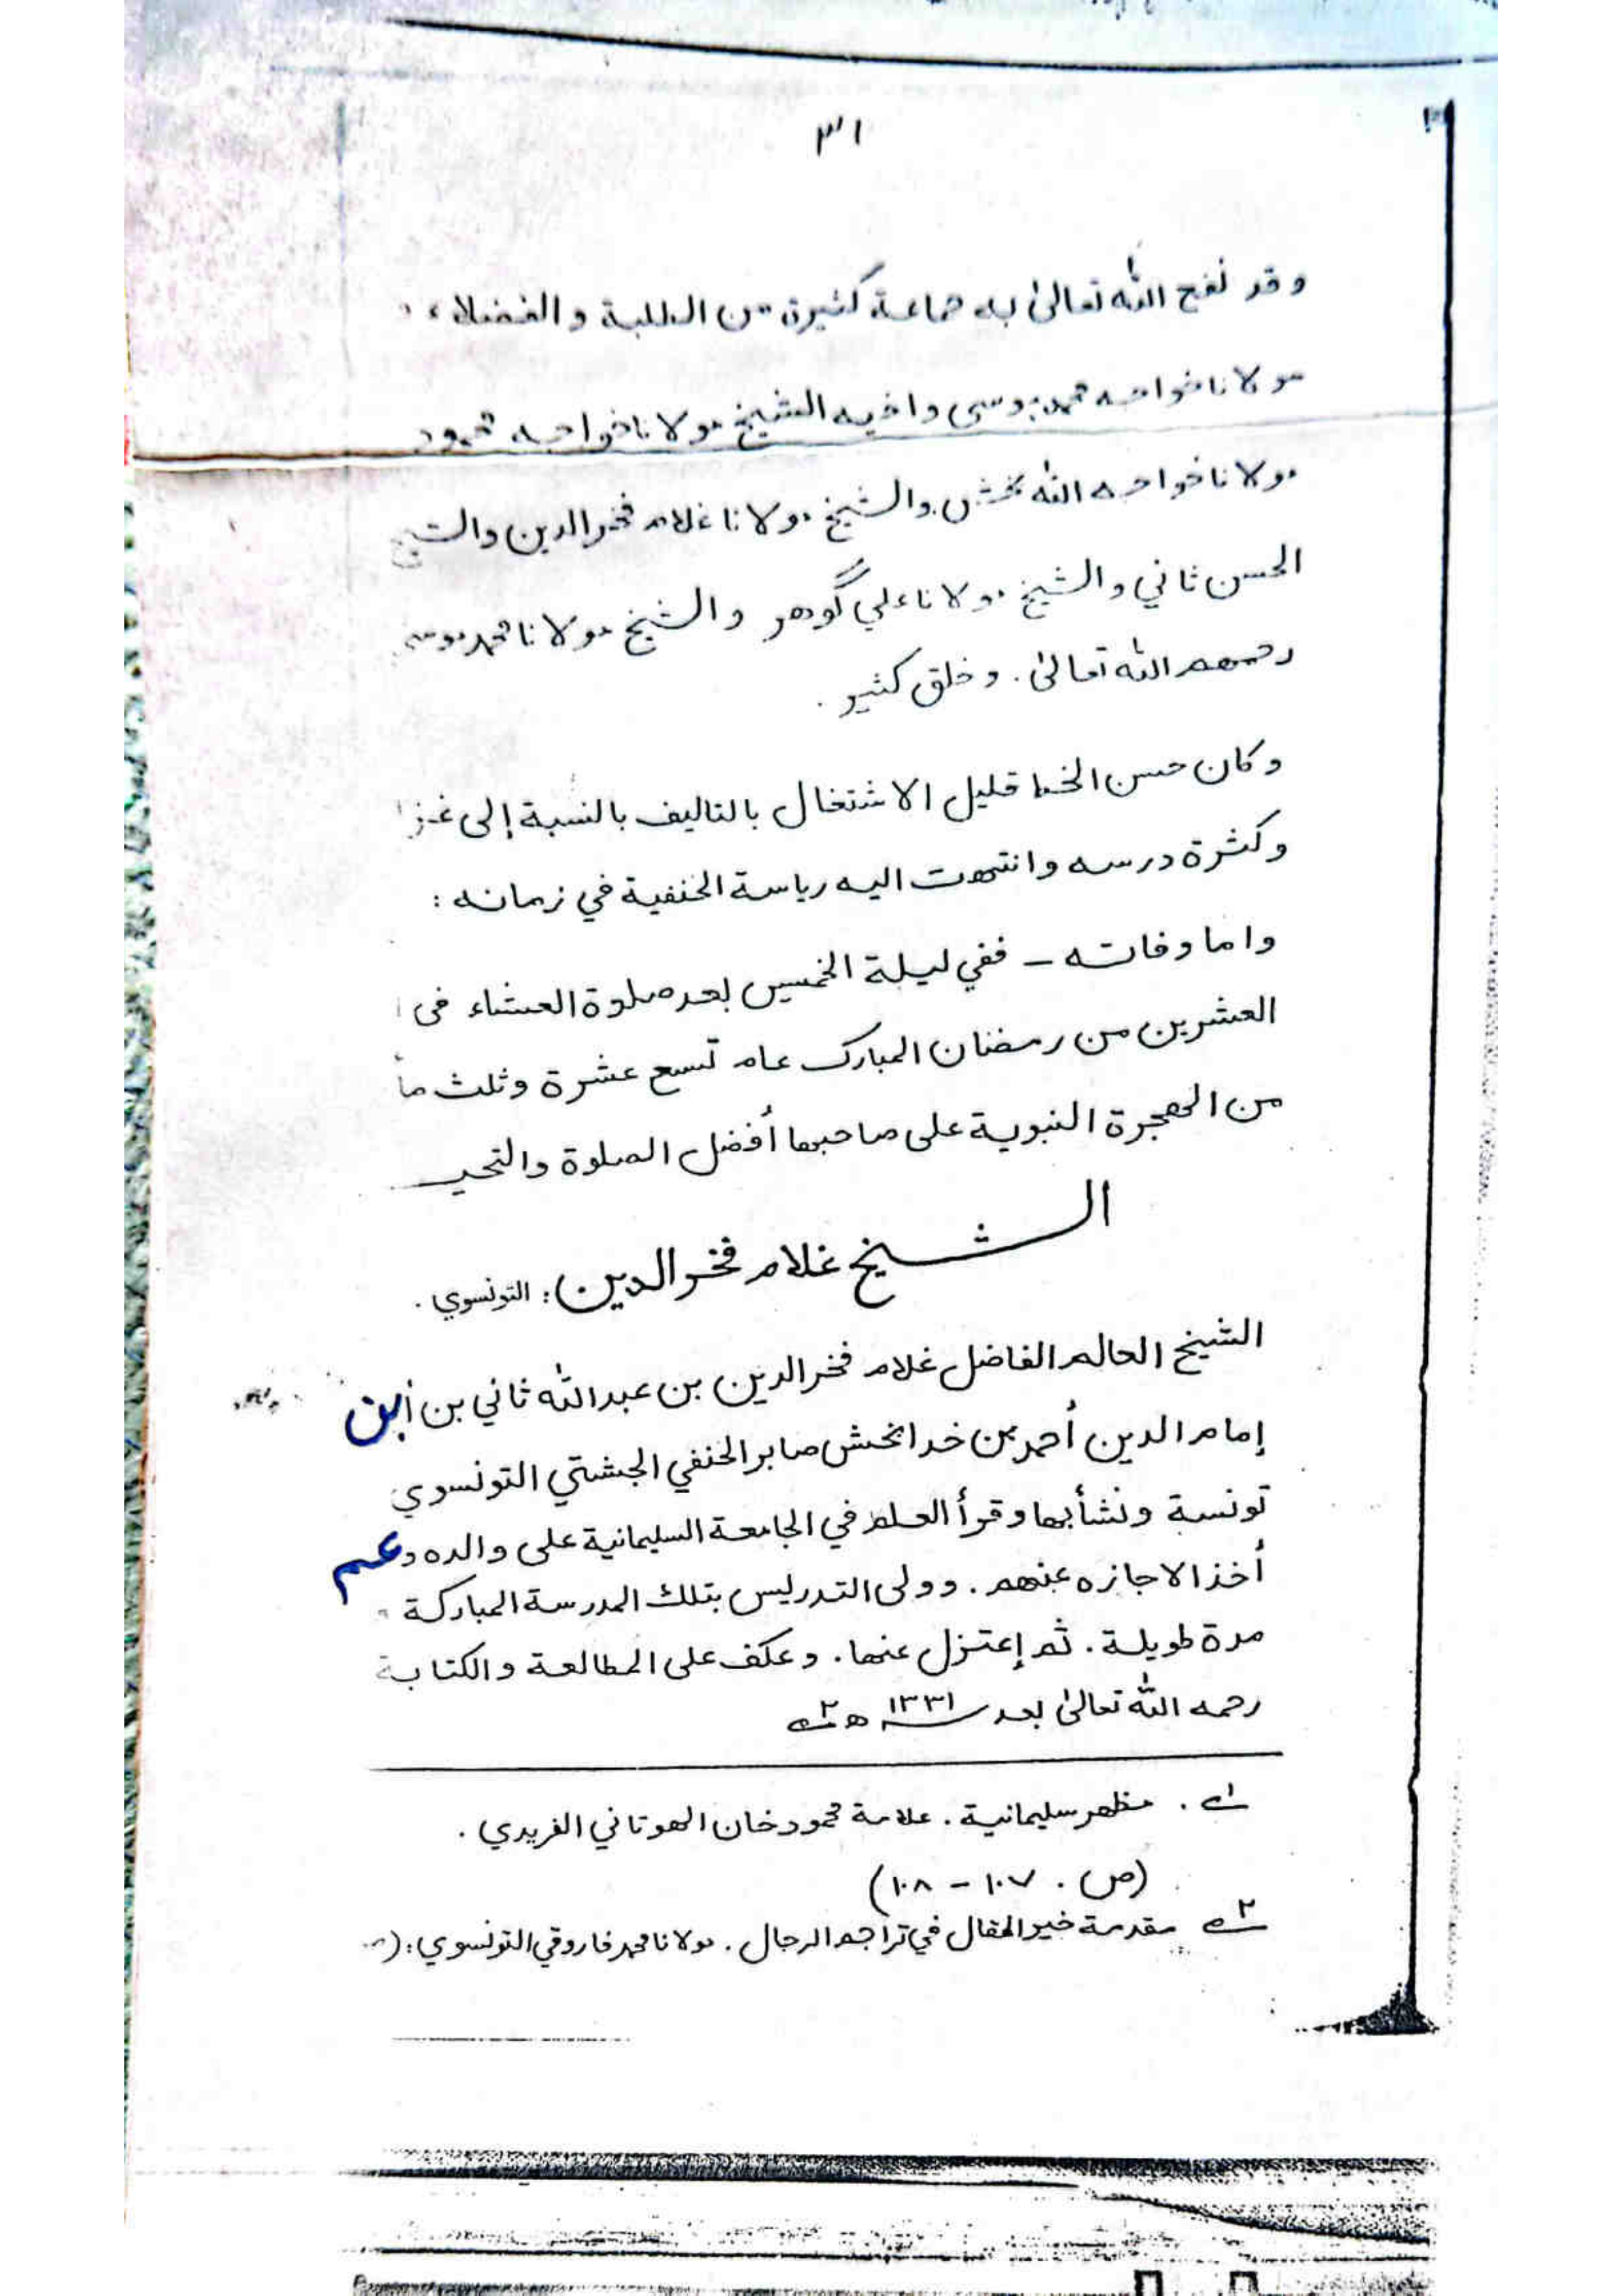 ٣١
وقد نفع الله تعالىٰ به جماعة كثيرة من الطلبة والفضلاء
مولانا خواجه محمد موسى واخيه الشيخ مولانا خواجه محمود
مولانا خواجه الله بخش والشيخ مولانا غلام فخر الدين والشيخ
الحسن ثاني والشيخ مولانا علي گوهر والشيخ مولانا محمد موسى
رحمهم الله تعالىٰ . وخلق كثير .
وكان حسن الخط قليل الاشتغال بالتاليف بالنسبة إلى
وكثرة درسه وانتهت اليه رياسة الحنفية في زمانه :
واما وفاته – ففي ليلة الخميس بعد صلوة العشاء فى
العشرين من رمضان المبارك عام تسع عشرة وثلث مأ
من الهجرة النبوية على صاحبها أفضل الصلوة والتحيـ
الشيخ غلام فخر الدين : التونسوي .
الشيخ العالم الفاضل غلام فخر الدين بن عبد الله ثاني بن ابن
إمام الدين أحمد بن خدا بخش صابر الحنفي الجشتي التونسوي
تونسة ونشأ بها وقرأ العلم في الجامعة السليمانية على والده و عم
أخذ الاجازه عنهم . وولى التدريس بتلك المدرسة المباركة
مدة طويلة . ثم إعتزل عنها . وعكف على المطالعة والكتابة
رحمه الله تعالىٰ بعد سنـ ١٣٣١ ـه ٢
١ . مظهر سليمانية . علامة محمود خان الهوتاني الفريدي .
(ص . ١٠٧ – ١٠٨)
٢ مقدمة خير المقال في تراجم الرجال . مولانا محمد فاروقي التونسوي : (